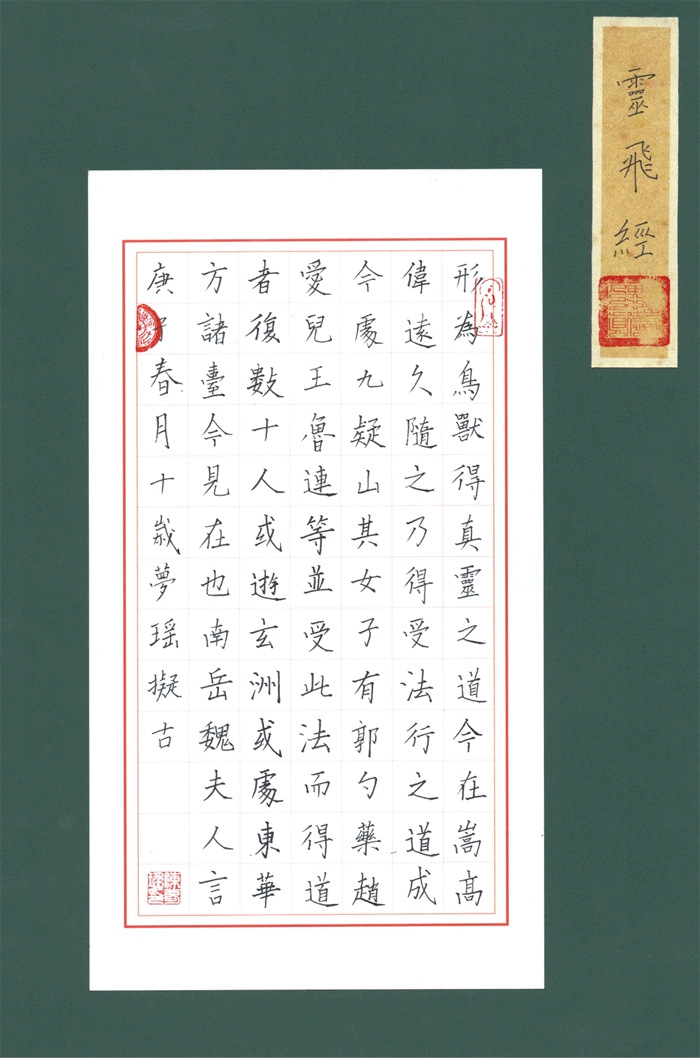 靈飛經
形為鳥獸得真靈之道今在嵩高
偉遠久隨之乃得受法行之道成
今處九疑山其女子有郭勺藥趙
愛兒王魯連等並受此法而得道
者復數十人或遊玄洲或處東華
方諸臺今見在也南岳魏夫人言
庚子春月十歲夢瑶擬古